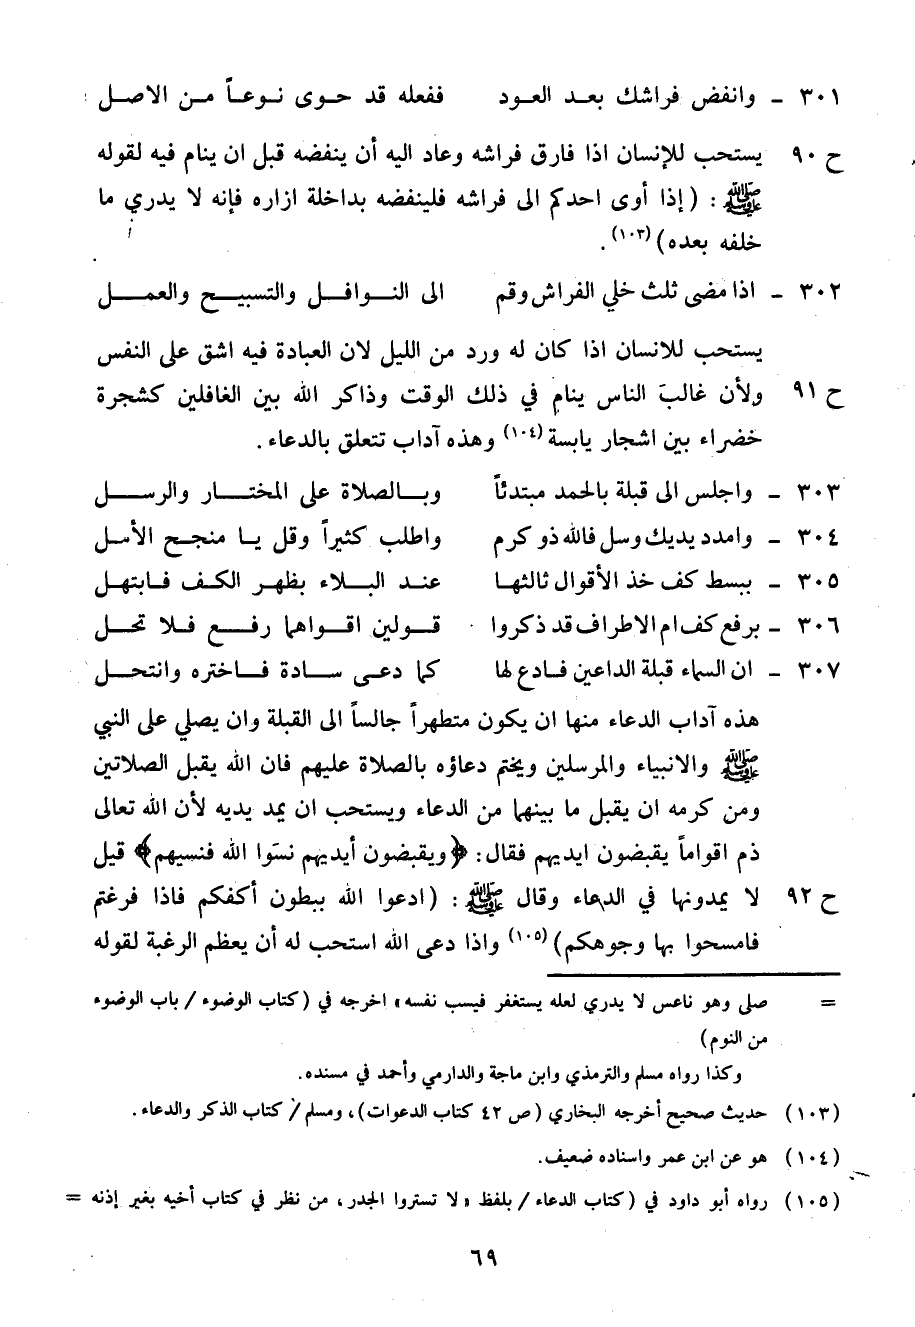 ٣٠١ ـ وانفض فراشك بعـد العـود ففعله قد حـوى نـوعـاً مـن الاصـل
ح ٩٠ يستحب للإنسان اذا فارق فراشه وعاد اليه أن ينفضه قبل ان ينام فيه لقوله
ﷺ : (إذا أوى احدكم الى فراشه فلينفضه بداخلة ازاره فإنه لا يدري ما
خلفه بعده)(١٠٣) .
٣٠٢ ـ اذا مضى ثلث خلي الفراش وقم الى النـوافـل والتسبيـح والعمـل
يستحب للانسان اذا كان له ورد من الليل لان العبادة فيه اشق على النفس
ح ٩١ ولأن غالبَ الناس ينام في ذلك الوقت وذاكر الله بين الغافلين كشجرة
خضراء بين اشجار يابسة(١٠٤) وهذه آداب تتعلق بالدعاء .
٣٠٣ ـ واجلس الى قبلة بالحمد مبتدئاً وبـالصلاة على المختـار والرسـل
٣٠٤ ـ وامدد يديك وسل فالله ذو كرم واطلب كثيراً وقل يـا منجـح الأمـل
٣٠٥ ـ ببسط كف خذ الأقوال ثالثها عند البـلاء بظهـر الكـف فـابتهـل
٣٠٦ ـ برفع كف ام الاطراف قد ذكروا قـولين اقـواهما رفـع فـلا تحـل
٣٠٧ ـ ان السماء قبلة الداعين فـادع لها كما دعـى سـادة فـاختره وانتحـل
هذه آداب الدعاء منها ان يكون متطهراً جالساً الى القبلة وان يصلي على النبي
ﷺ والانبياء والمرسلين ويختم دعاؤه بالصلاة عليهم فان الله يقبل الصلاتين
ومن كرمه ان يقبل ما بينهما من الدعاء ويستحب ان يمد يديه لأن الله تعالى
ذم اقواماً يقبضون ايديهم فقال : ﴿ويقبضون أيديهم نسَوا الله فنسيهم﴾ قيل
ح ٩٢ لا يمدونها في الدعاء وقال ﷺ : (ادعوا الله ببطون أكفكم فاذا فرغتم
فامسحوا بها وجوهكم)(١٠٥) واذا دعى الله استحب له أن يعظم الرغبة لقوله
= صلى وهو ناعس لا يدري لعله يستغفر فيسب نفسه» اخرجه في (كتاب الوضوء / باب الوضوء
من النوم)
وكذا رواه مسلم والترمذي وابن ماجة والدارمي وأحمد في مسنده .
(١٠٣) حديث صحيح أخرجه البخاري (ص ٤٢ كتاب الدعوات) ، ومسلم / كتاب الذكر والدعاء .
(١٠٤) هو عن ابن عمر واسناده ضعيف .
(١٠٥) رواه أبو داود في (كتاب الدعاء / بلفظ «لا تستروا الجدر ، من نظر في كتاب أخيه بغير إذنه =
٦٩